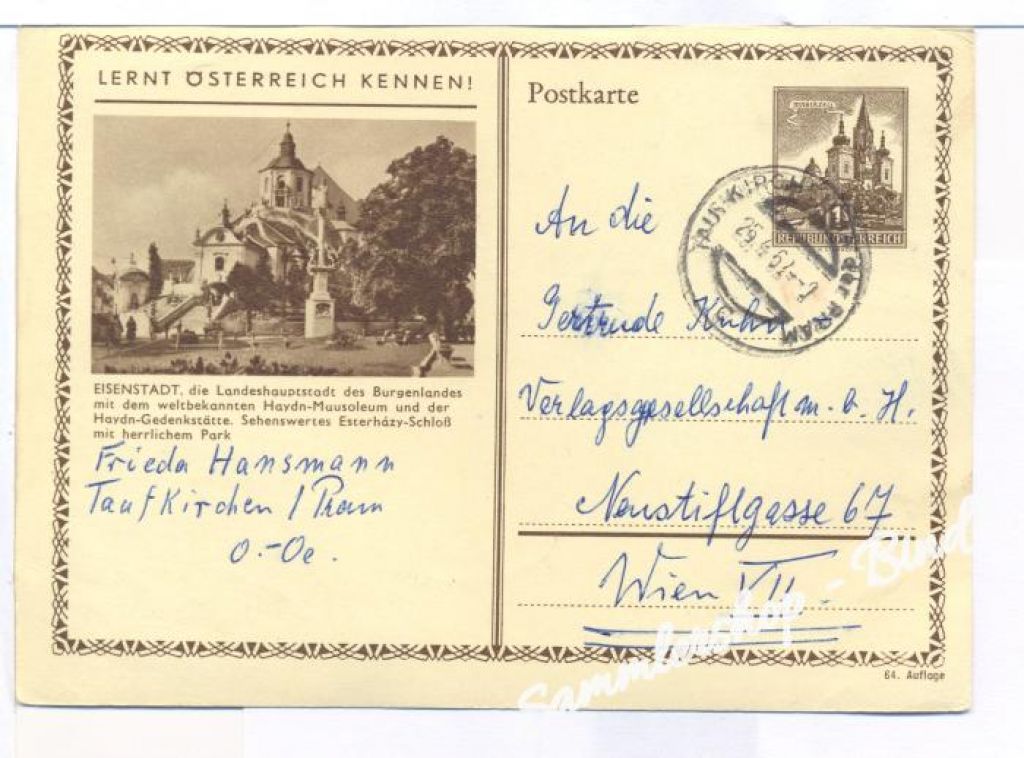 LERNT ÖSTERREICH KENNEN!
EISENSTADT, die Landeshauptstadt des Burgenlandes
mit dem weltbekannten Haydn-Mausoleum und der
Haydn-Gedenkstätte. Sehenswertes Esterházy-Schloß
mit herrlichem Park
Frieda Hansmann
Taufkirchen / Pram
O.-Oe.
Postkarte
MARIAZELL
1
REPUBLIK ÖSTERREICH
KIRCH
der PRAM
An die
Gertrude Kuhn
Verlagsgesellschaft m. b. H.
Neustiftgasse 67
Wien VII.
64. Auflage
Sammlershop -